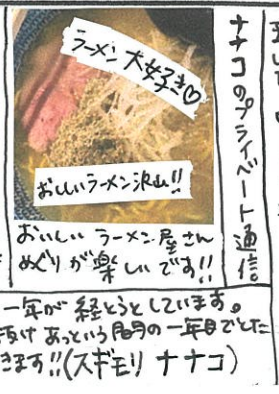 ナナコのプライベート通信
ラーメン大好き♡
おいしいラーメン沢山!!
おいしいラーメン屋さん
めぐりが楽しいです!!
一年が経とうとしています。
あっという間の一年目でした
きます!!(スギモリ ナナコ)